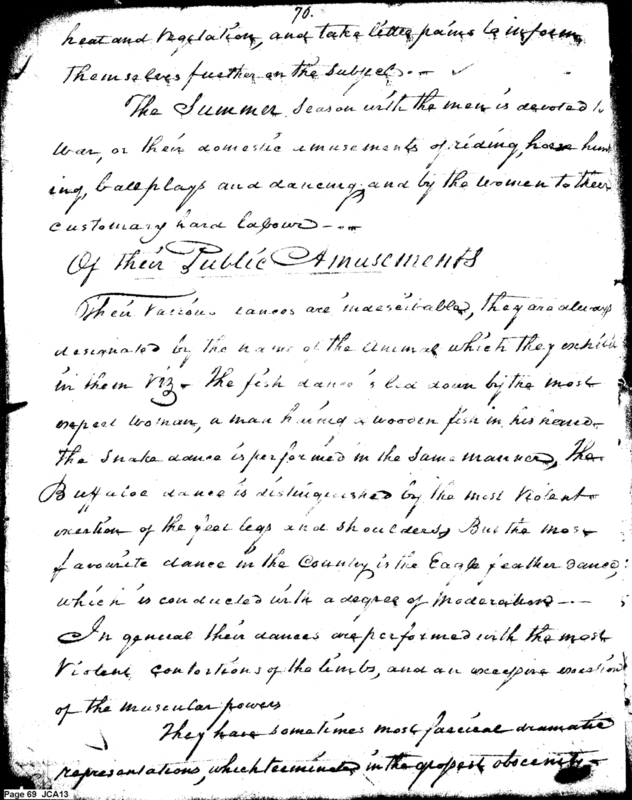 70.
heat and Vegetation, and take little pains to inform
themselves further on the subject. —
The Summer Season with the men is devoted to
war, or their domestic amusements of riding, horse hunt
ing, ballplays and dancing; and by the women to their
customary hard labour — . —
Of their Public Amusements
Their Various dances are indescribable, they are always
designated by the name of the animal which they exhibit
in them Viz. The fish dance is led down by the most
expert woman, a man having a wooden fish in his hand.
the Snake dance is performed in the same manner, The
Buffaloe dance is distinguished by the most Violent
exertion of the feet legs and shoulders, But the most
favourite dance in the Country is the Eagle feather dance;
which is conducted with a degree of moderation — . —
In general their dances are performed with the most
Violent contortions of the limbs, and an excessive exertion
of the muscular powers
They have sometimes most farcical dramatic
representations, which terminate in the grossest obscenity.
Page 69 JCA13